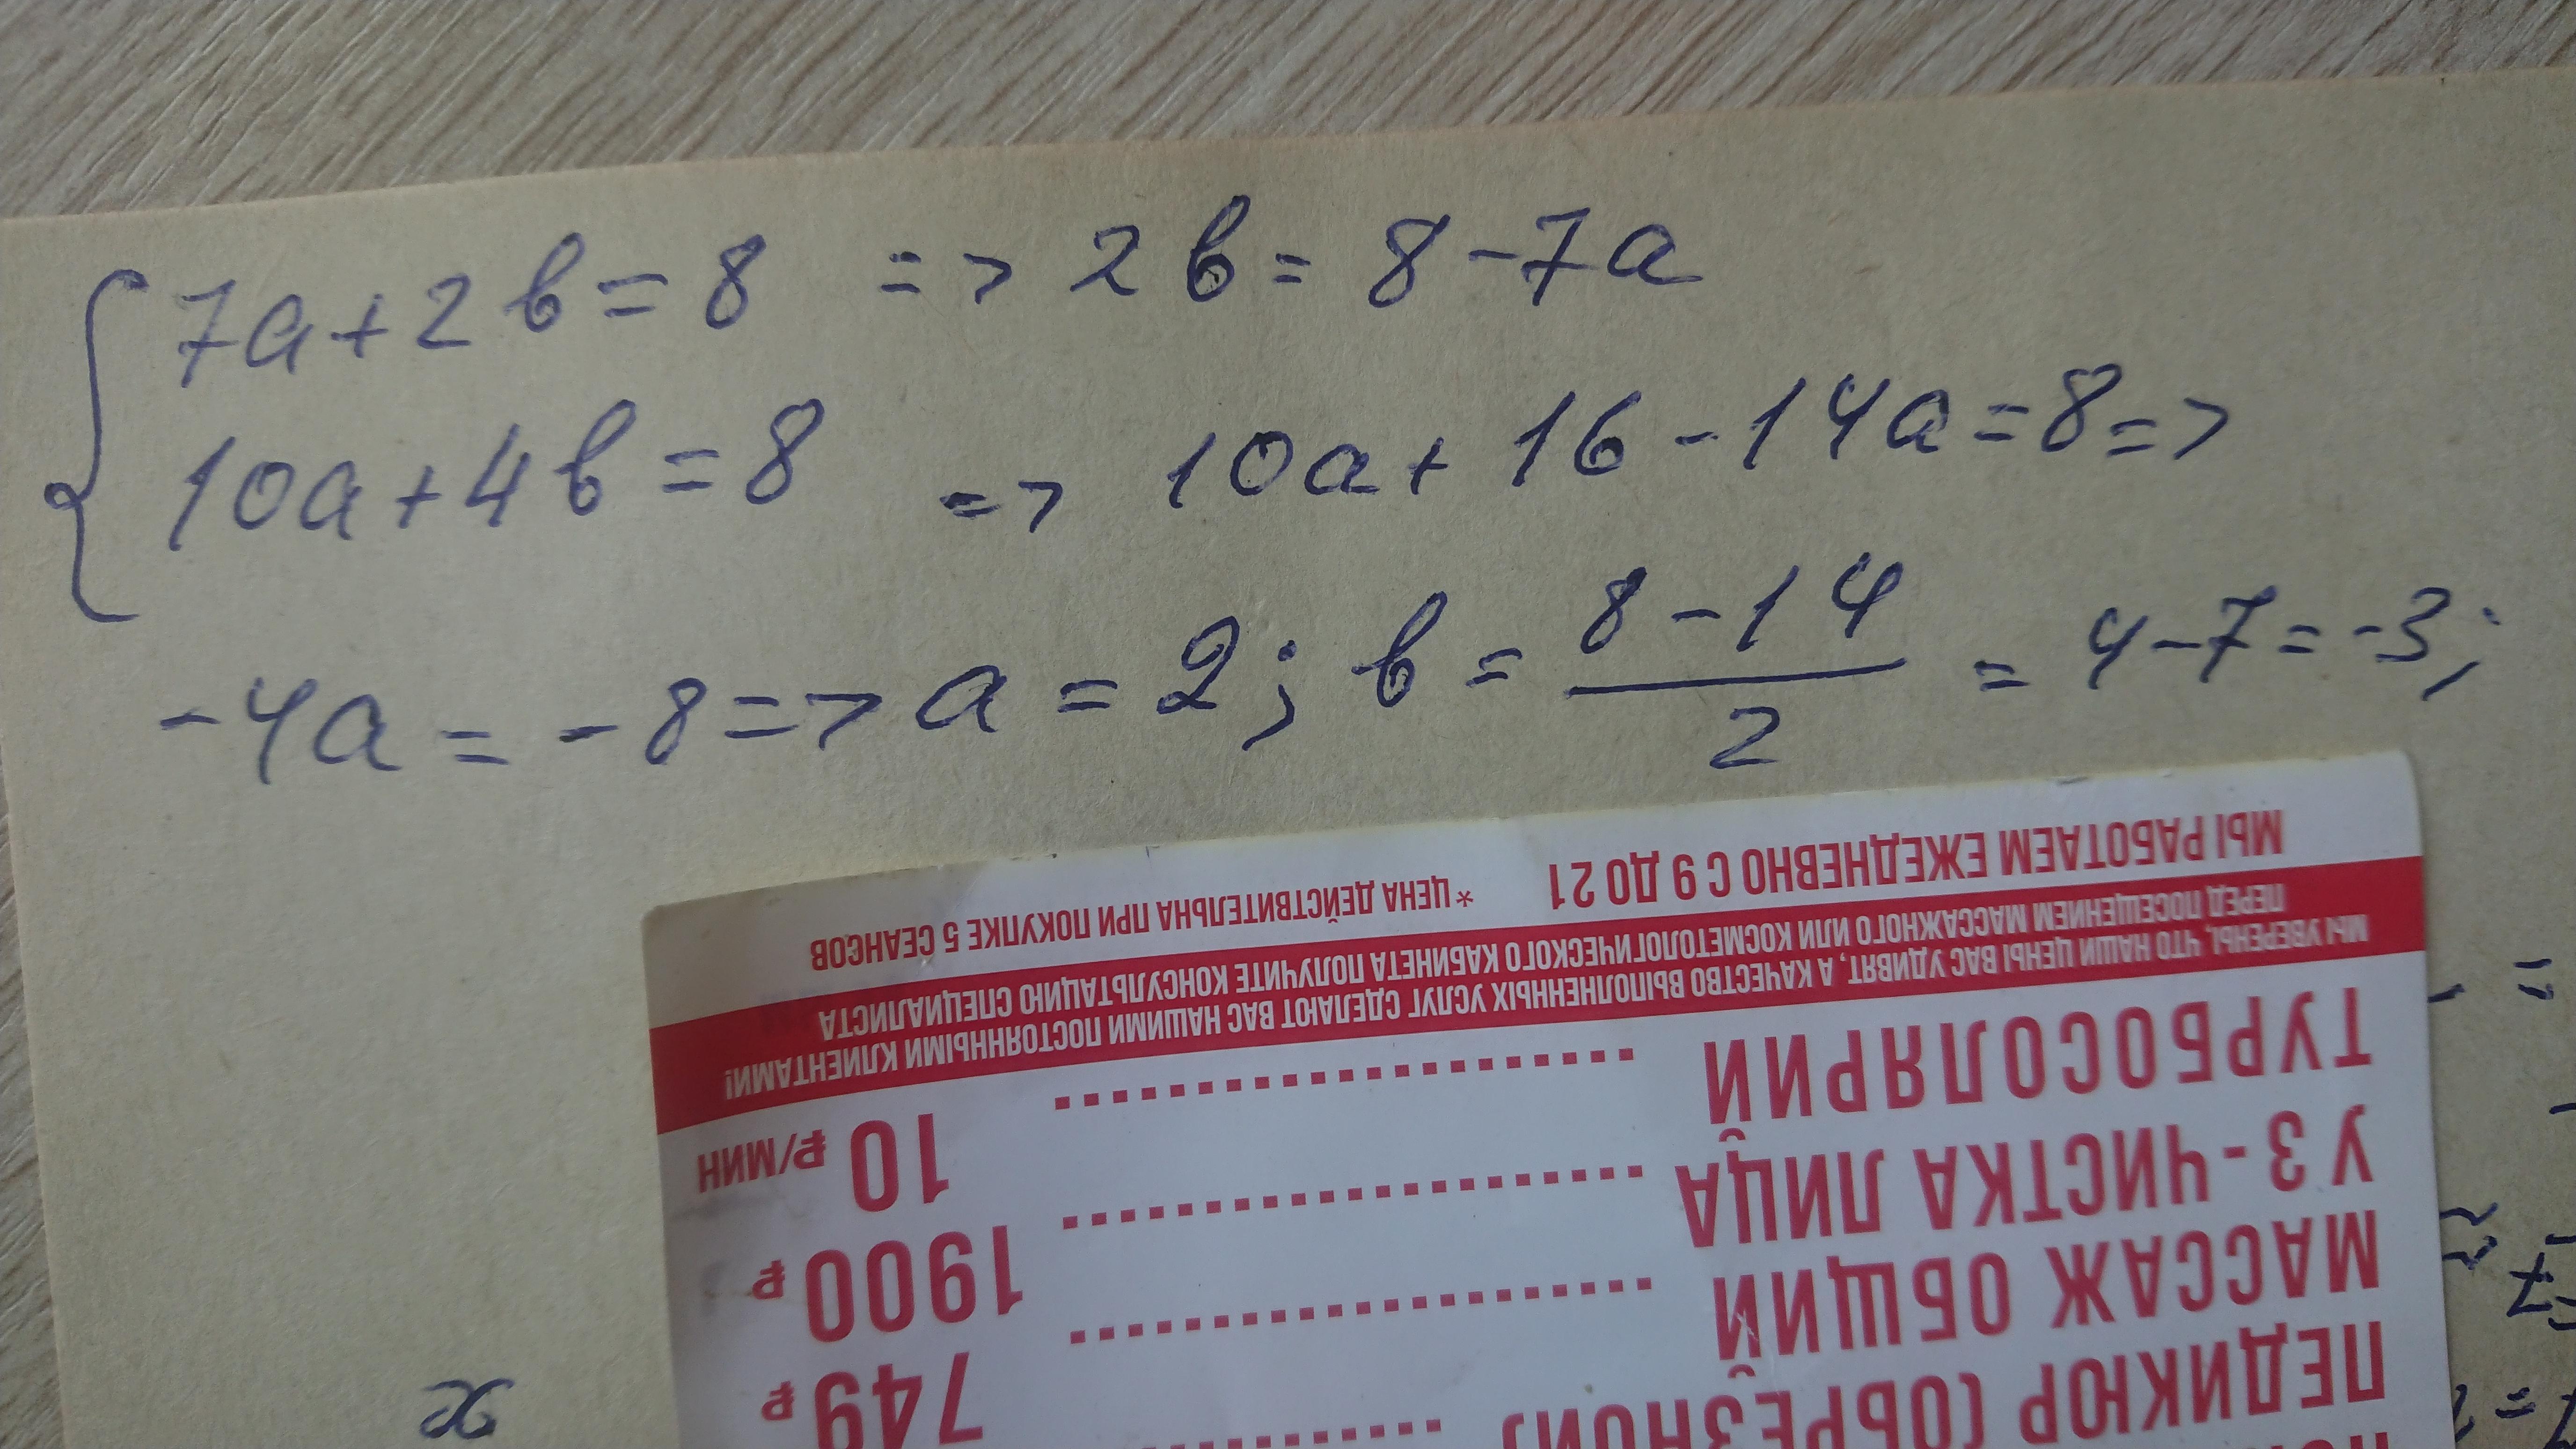 7a+2b=8 => 2b=8-7a
10a+4b=8 => 10a+16-14a=8=>
-4a=-8=>a=2; b=(8-14)/2=4-7=-3;
МЫ РАБОТАЕМ ЕЖЕДНЕВНО С 9 ДО 21 * ЦЕНА ДЕЙСТВИТЕЛЬНА ПРИ ПОКУПКЕ 5 СЕАНСОВ
ПЕРЕД ПОСЕЩЕНИЕМ МАССАЖНОГО ИЛИ КОСМЕТОЛОГИЧЕСКОГО КАБИНЕТА ПОЛУЧИТЕ КОНСУЛЬТАЦИЮ СПЕЦИАЛИСТА
МЫ УВЕРЕНЫ, ЧТО НАШИ ЦЕНЫ ВАС УДИВЯТ, А КАЧЕСТВО ВЫПОЛНЕННЫХ УСЛУГ СДЕЛАЮТ ВАС НАШИМИ ПОСТОЯННЫМИ КЛИЕНТАМИ!
ТУРБОСОЛЯРИЙ .................... 10 ₽/МИН
УЗ-ЧИСТКА ЛИЦА .................... 1900 ₽
МАССАЖ ОБЩИЙ .................... 749 ₽
ПЕДИКЮР (ОБРЕЗНОЙ)
x